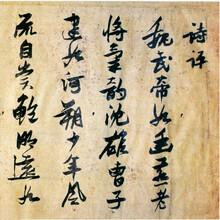 詩評
魏武帝如幽燕老
將氣韵沈雄曹子
建如河朔少年風
流自賞鮑明遠如